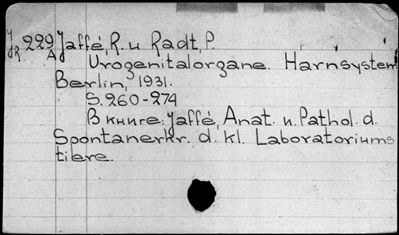 J/R 229 A Jaffé, R. u. Radt, P.
Urogenitalorgane. Harnsystem
Berlin, 1931.
S. 260-274
В книге: Jaffé, Anat. u. Pathol. d.
Spontanerkr. d. kl. Laboratoriums
tiere.